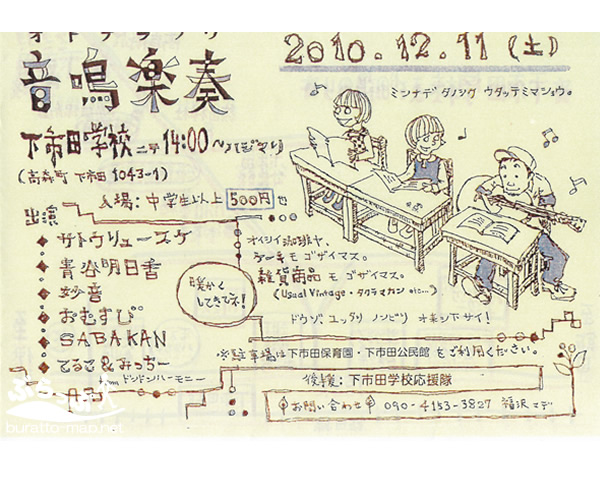 2010.12.11(土)
音鳴楽奏
ミンナデ タノシク ウタッテミマショウ。
下市田学校ニテ 14:00〜
(高森町 下市田 1043-1)
入場: 中学生以上 500円
出演
サトウリュースケ
青谷明日香
妙音
おむすび
SABAKAN
てるこ&みっちー
from ドンドンハーモニー
暖かく
してきてネ!
オイシイ珈琲ヤ、
ケーキモゴザイマス。
雑貨商品モゴザイマス。
(Usual Vintage・タクラマカン etc...)
ドウゾ、ユックリ ノンビリ オキシ下サイ!
※駐車場は下市田保育園・下市田公民館をご利用ください。
後援: 下市田学校応援隊
お問い合わせ 090-4153-3827 福沢マデ
ぶらっと
buratto-map.net